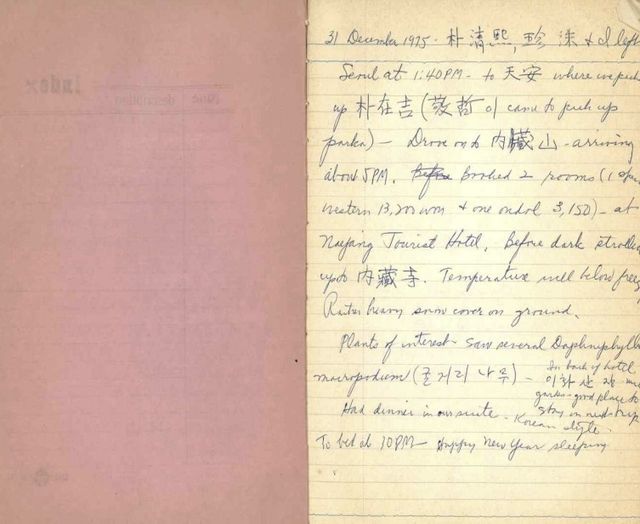 31 December 1975 - 朴清熙, 珍洙 & I left
Seoul at 1:40PM - to 天安 where we pick
up 朴在吉 (敬哲 이 came to pick up
parka) - Drove on to 内臟山 - arriving
about 5PM. Before Booked 2 rooms (1
western 13,200 won & one ondol 3,150) - at
Naejang Tourist Hotel. Before dark strolled
up to 内藏寺. Temperature well below freez
Rather heavy snow cover on ground.
Plants of interest - saw several Daphniphyllu
macropodum (굴거리나무) -
In back of hotel
이화산장
garks - good place to
stay on next trip
Korean style.
Had dinner in our suite.
To bed at 10PM - Happy New Year sleeping
Index